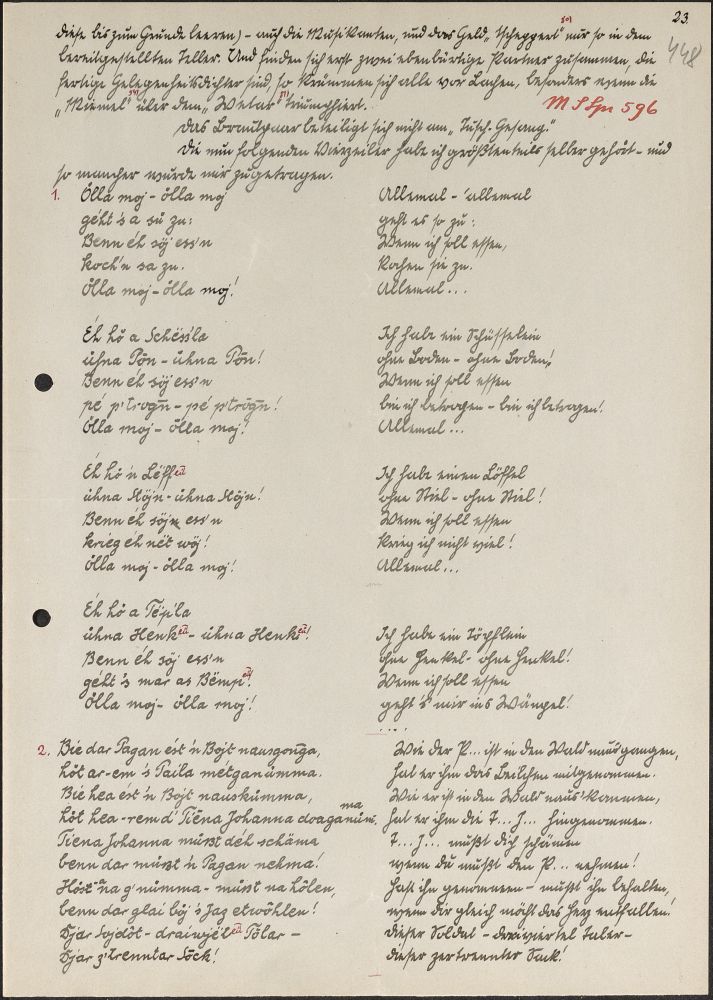 23
448
diese bis zum Grunde leeren) - auch die Musikanten, und das Geld "tscheppert" nur so in dem
bereitgestellten Teller. Und finden sich erst zwei ebenbürtige Partner zusammen, die
fertige Gelegenheitsdichter sind, so krümmen sich alle vor Lachen, besonders wenn die
über dem triumphiert.
M S Spr 596
Das Brautpaar beteiligt sich nicht am "Tisch-Gesang."
Die nun folgenden Vierzeiler habe ich größtenteils selber gehört - und
so mancher wurde mir zugetragen.
1. Ölla moj - ölla moj
geht 's a sů zu:
Benn éh söj ess'n
koch'n sa zu.
Ölla moj - ölla moj!
Allemal - allemal
geht es so zu:
Wenn ich soll essen,
kochen sie zu.
Allemal...
Eh hô a Schéss'la
ůhna Pôn - ůhna Pôn!
Benn éh söj ess'n
pé p'trogn - pé p'trogn!
Ölla moj - ölla moj!
Ich habe ein Schüsselein
ohne Boden - ohne Boden!
Wenn ich soll essen
bin ich betrogen - bin ich betrogen!
Allemal...
Eh hô 'n Léffel
ůhna Stöjn - ůhna Stöjn!
Benn éh söj ess'n
krieg eh nét wöj!
Ölla moj - ölla moj!
Ich habe einen Löffel
ohne Stiel - ohne Stiel!
Wenn ich soll essen
krieg ich nicht viel!
Allemal...
Eh hô a Tép'la
ůhna Henkel - ůhna Henkel!
Benn éh söj ess'n
géht 's mar as Bémpel!
Ölla moj - ölla moj!
Ich habe ein Töpflein
ohne Henkel - ohne Henkel!
Wenn ich soll essen
geht 's mir ins Wämpel!
....
2. Bie dar Pagan ést 'n Bojt nausgonga,
hôt ar-em 's Paila métganumma.
Bie hea ést 'n Bojt nauskumma,
hôt hea-rem d' Tiena Johanna doaganumma.
Tiena Johanna můsst déh schäma
benn dar můsst 'n Pagan nehma!
Höst na g'numma - můsst na hôlen,
benn dar glai böj 's Jag etwôhlen!
Djar Sojdôt - draiwjél Tôlar -
Djar z'trenntar Sôck!
Wie der P... ist in den Wald nausgangen,
hat er ihm das Beilchen mitgenommen.
Wie er ist in den Wald naus'kommen,
hat er ihm die T... J... hingenommen.
T... J... mußt dich schämen
wenn du mußt den P... nehmen!
Hast ihn genommen - mußt ihn behalten,
wenn dir gleich möcht das Herz entfallen!
Dieser Soldat - dreiviertel Taler -
dieser zertrennter Sack!